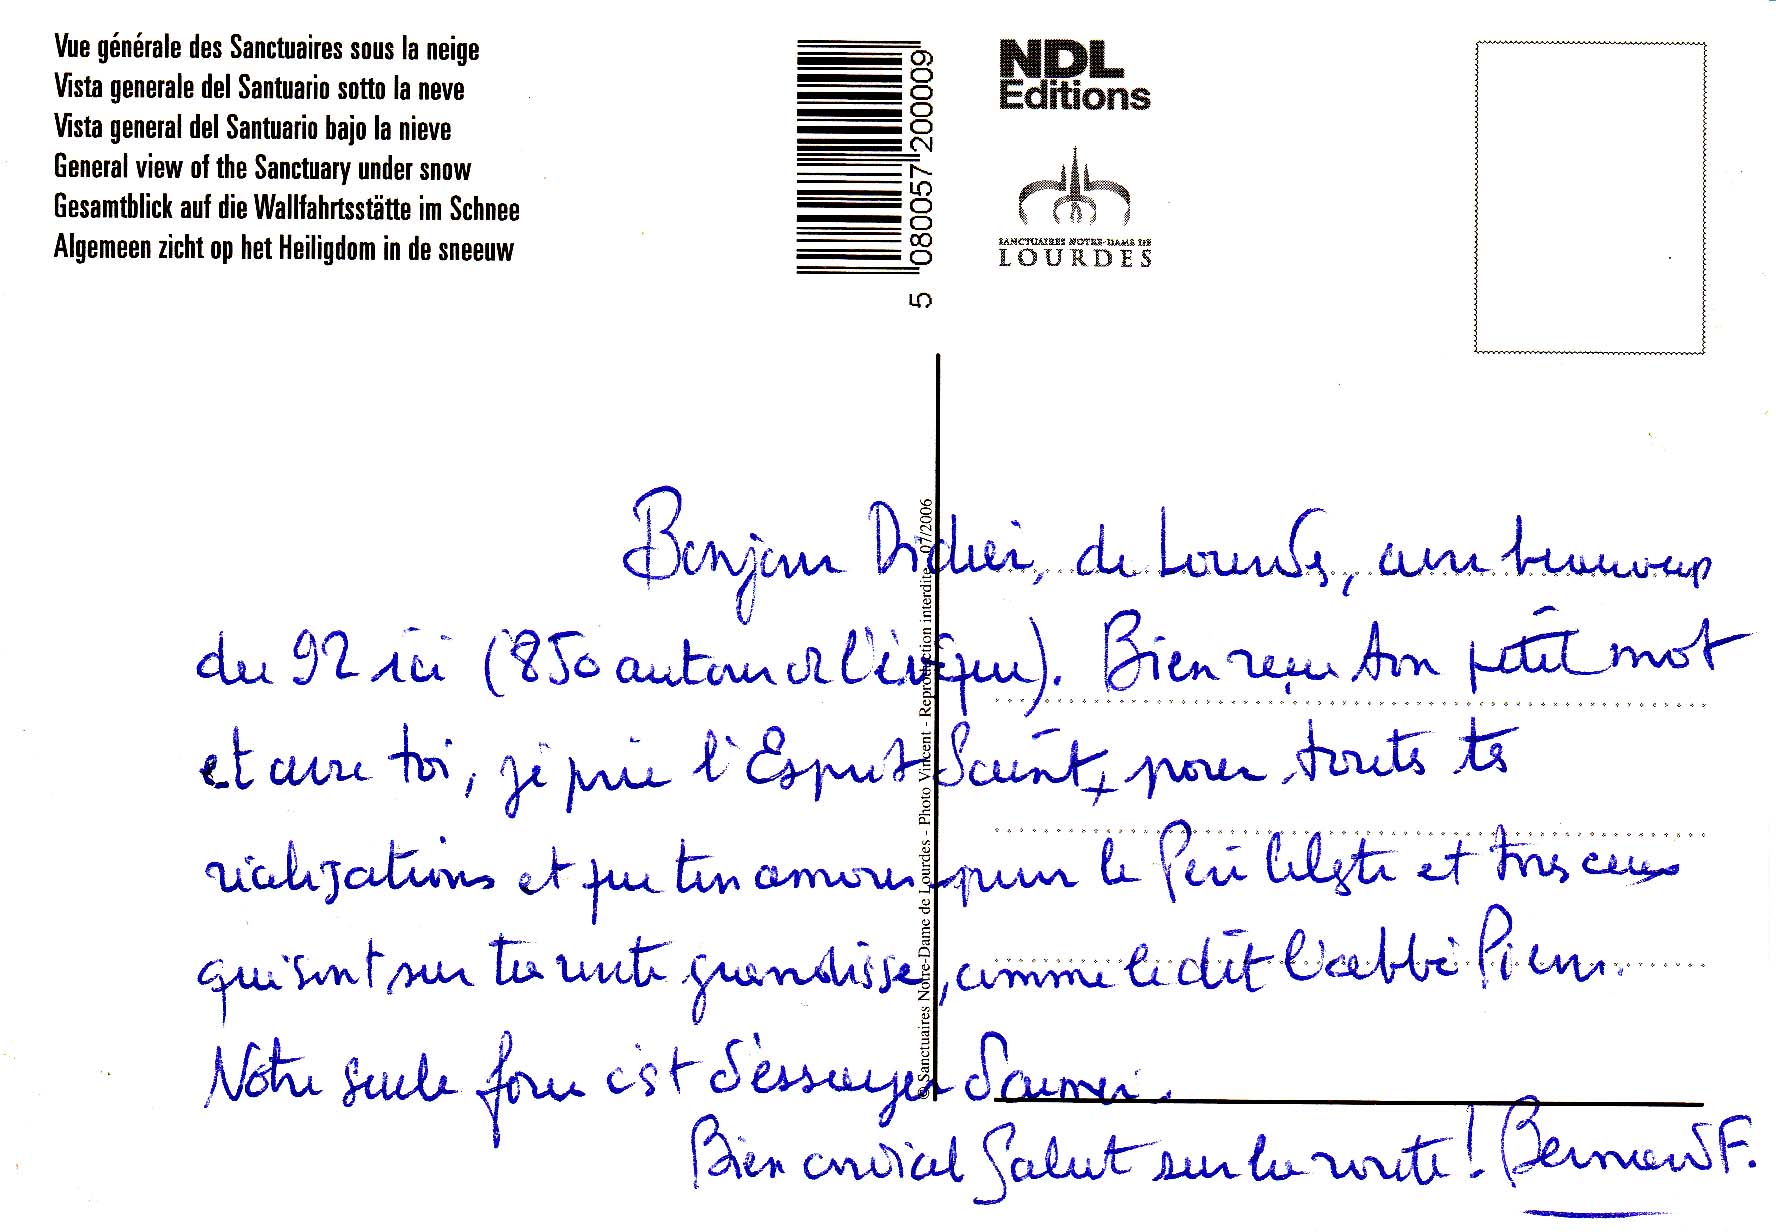 Vue générale des Sanctuaires sous la neige
Vista generale del Santuario sotto la neve
Vista general del Santuario bajo la nieve
General view of the Sanctuary under snow
Gesamtblick auf die Wallfahrtsstätte im Schnee
Algemeen zicht op het Heiligdom in de sneeuw
5 080057 200009
NDL
Editions
SANCTUAIRES NOTRE-DAME DE
LOURDES
© Sanctuaires Notre-Dame de Lourdes - Photo Vincent - Reproduction interdite - 07/2006
Bonjour Didier, de Lourdes, avec beaucoup
du 92 ici (850 autour de l'évêque). Bien reçu ton petit mot
et avec toi, je prie l'Esprit Saint, pour toutes tes
réalisations et que ton amour pour le Père Céleste et tous ceux
qui sont sur ta route grandisse, comme le dit l'abbé Pierre.
Notre seule force c'est d'essayer d'aimer.
Bien cordial Salut sur la route ! Bernard F.